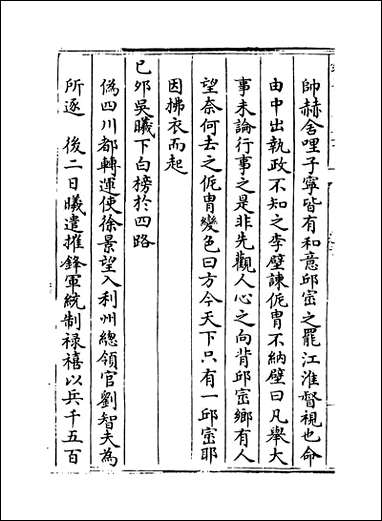 帥赫舍哩子寧皆有和意邱崈之罷江淮督視也命
由中出執政不知之李壁諫侂胄不納壁曰凡舉大
事未論行事之是非先觀人心之向背邱崈鄉有人
望奈何去之侂胄變色曰方今天下只有一邱崈耶
因拂衣而起
已夘吳曦下白榜於四路
偽四川都轉運使徐景望入利州總領官劉智夫為
所逐 後二日曦遣摧鋒軍統制禄禧以兵千五百